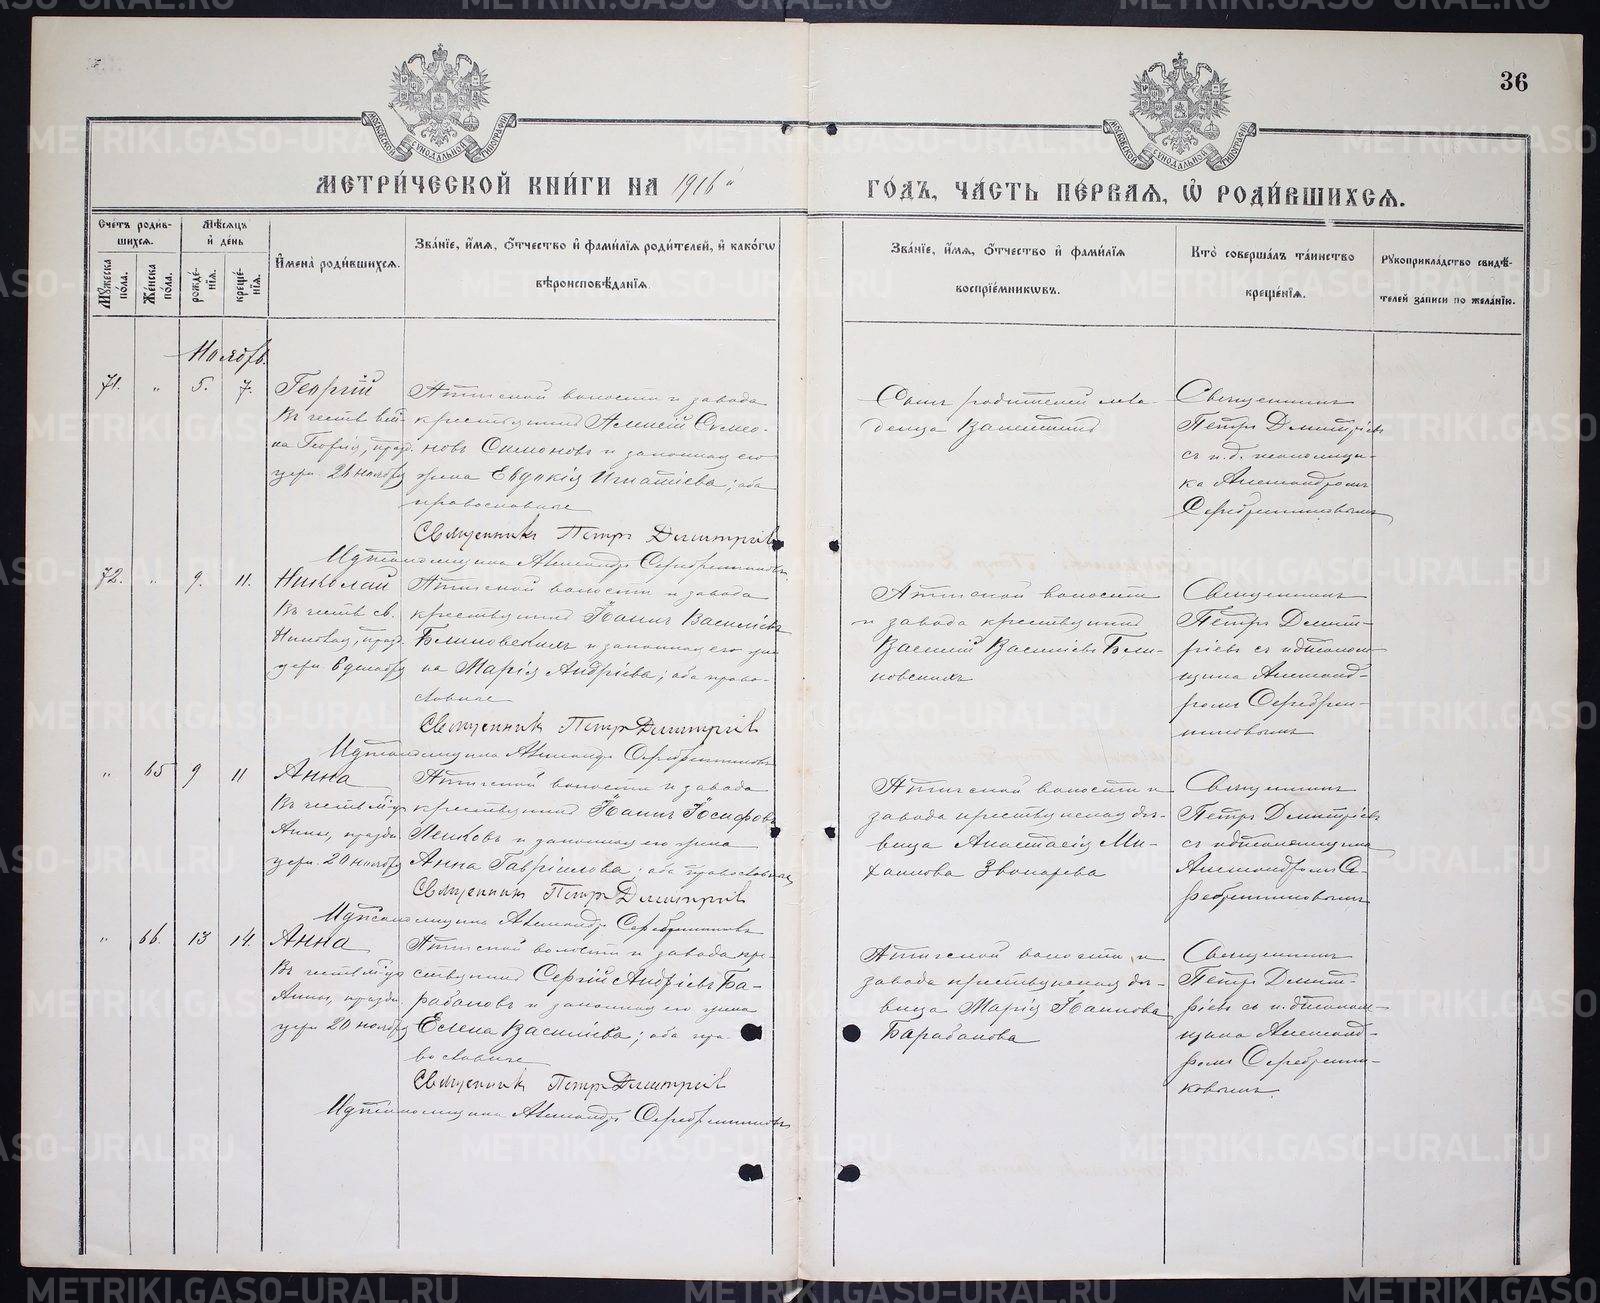 36
МОСКОВСКОЙ СУНОДАЛЬНОЙ ТИПОГРАФИИ
МОСКОВСКОЙ СУНОДАЛЬНОЙ ТИПОГРАФИИ
МЕТРИ́ЧЕСКОЙ КНИ́ГИ НА 1916й
ГО́ДЪ, ЧА́СТЬ ПЕ́РВАѦ, Ѡ҆ РОДИ́ВШИХСѦ.
Сче́тъ роди́в-
шихсѧ.
Мꙋ́жеска по́ла.
Же́нска по́ла.
Мѣ́сѧцъ
и҆ де́нь
рожде́-
нїѧ.
креще́-
нїѧ.
И҆мена̀ роди́вшихсѧ.
Зва́нїе, и҆́мѧ, ѻ҆́тчество и҆ фами́лїѧ роди́телей, и҆ како́гѡ
вѣроисповѣ́данїѧ.
Зва́нїе, и҆́мѧ, ѻ҆́тчество и҆ фами́лїѧ
воспрїе́мникѡвъ.
Кто̀ соверша́лъ та́инство
креще́нїѧ.
Рꙋкоприкла́дство свидѣ́-
телей за́писи по жела́нїю.
Ноябрь.
71. " 5. 7. Георгій
Въ честь вм-
ка Георгія, празд.
церк. 26 ноября
Атигской волости и завода
крестьянинъ Алексій Симео-
новъ Симоновъ и законная его
жена Евдокія Игнатіева; оба
православные
Священникъ Петръ Димитріевъ
И.д. псаломщика Александръ Серебренниковъ
Сынъ родителей мла-
денца Валентинъ
Священникъ
Петръ Димитріевъ
съ и.д. псаломщи-
ка Александромъ
Серебренниковымъ
72. " 9. 11. Николай
Въ честь св.
Николая, празд.
церк. 6 декабря
Атигской волости и завода
крестьянинъ Іоаннъ Василіевъ
Белиновскихъ и законная его же-
на Марія Андріева; оба право-
славные
Священникъ Петръ Димитріевъ
И.д. псаломщика Александръ Серебренниковъ
Атигской волости
и завода крестьянинъ
Василій Василіевъ Бели-
новскихъ
Священникъ
Петръ Димит-
ріевъ съ и.д. псалом-
щика Александ-
ромъ Серебрен-
никовымъ
" 65 9 11 Анна
Въ честь м-цы
Анны, праздн.
церк. 20 ноября
Атигской волости и завода
крестьянинъ Іоаннъ Іосифовъ
и законная его жена
Анна Гавріилова; оба православные
Священникъ Петръ Димитріевъ
И.д. псаломщика Александръ Серебренниковъ
Атигской волости и
завода крестьянская дѣ-
вица Анастасія Ми-
хаилова Звонарева
Священникъ
Петръ Димитріевъ
съ и.д. псаломщика
Александромъ Се-
ребренниковымъ
" 66. 13 14. Анна
Въ честь м-цы
Анны, праздн.
церк. 20 ноября
Атигской волости и завода кре-
стьянинъ Сергій Андріевъ Ба-
рабановъ и законная его жена
Елена Василіева; оба пра-
вославные
Священникъ Петръ Димитріевъ
И.д. псаломщика Александръ Серебренниковъ
Атигской волости и
завода крестьянская дѣ-
вица Марія Іоаннова
Барабанова
Священникъ
Петръ Димит-
ріевъ съ и.д. псалом-
щика Александ-
ромъ Серебренни-
ковымъ
METRIKI.GASO-URAL.RU